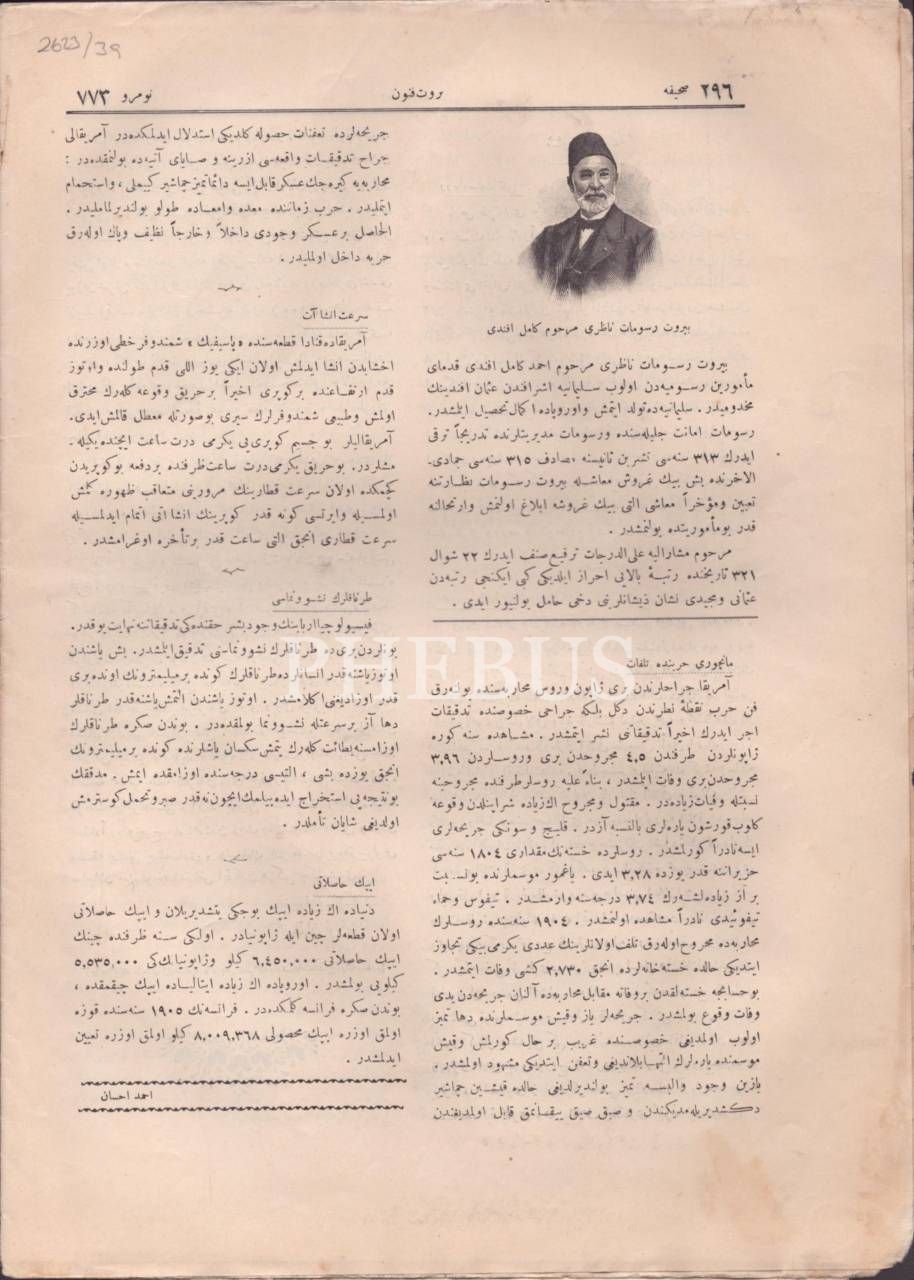 2623/39
صحیفه ٢٩٦
ثروت فنون
نومرو ٧٧٣
بیروت رسومات ناظری مرحوم کامل افندی
بیروت رسومات ناظری مرحوم احمد کامل افندی قدمای
مأمورین رسومیه‌دن اولوب سلیمانیه اشرافندن عثمان افندینك
مخدومیدر . سلیمانیه‌ده تولد ایتمش واوروپاده اکمال تحصیل ایلمشدر.
رسومات امانت جلیله‌سنده ورسومات مدیریتلرنده تدریجاً ترقی
ایدرك ٣١٣ سنه‌سی تشرین ثانیسنه مصادف ٣١٥ سنه‌سی جمادی‌ـ
الاخرنده بش بیك غروش معاشله بیروت رسومات نظارتنه
تعیین ومؤخراً معاشی التی بیك غروشه ابلاغ اولنمش وارتحالنه
قدر بومأموریتده بولنمشدر .
مرحوم مشارالیه علی الدرجات ترفیع صنف ایدرك ٢٢ شوال
٣٢١ تاریخنده رتبهٔ بالایی احراز ایلدیکی کبی ایکنجی رتبه‌دن
عثمانی ومجیدی نشان ذیشانلرینی دخی حامل بولنیور ایدی .
مانچوری حربنده تلفات
آمریقا جراحلرندن بری ژاپون وروس محاربه‌سنده بولنه‌رق
فن حرب نقطهٔ نظرندن دکل بلکه جراحی خصوصنده تدقیقات
اجرا ایدرك اخیراً تدقیقاتنی نشر ایتمشدر . مشاهده سنه کوره
ژاپونلردن طرفندن ٤,٥ مجروحدن بری وروسلردن ٣,٩٦
مجروحدن بری وفات ایلمشدر ، بناءً علیه روسلر طرفنده مجروحینه
نسبتله وفیات زیاده‌در . مقتول ومجروح اك زیاده شراپنلدن وقوعه
کلوب قورشون یاره‌لری بالنسبه آزدر . قلیچ و سونکی جریحه‌لری
ایسه نادراً کورلمشدر . روسلرده خسته‌نك مقداری ١٨٠٤ سنه‌سی
حزیراننه قدر یوزده ٣,٢٨ ایدی . یاغمور موسملرنده بو نسبت
بر آز زیاده‌لشه‌رك ٣,٧٤ درجه‌سنه وارمشدر . تیفوس وحمای
تیفوئیدی نادراً مشاهده اولنمشدر . ١٩٠٤ سنه‌سنده روسلرك
محاربه‌ده مجروح اوله‌رق تلف اولانلرینك عددی یکرمی بیکی تجاوز
ایتدیکی حالده خسته‌خانه‌لرده انجق ٢,٧٣٠ کشی وفات ایتمشدر .
بوحسابجه خسته‌لقدن بروفاته مقابل محاربه‌ده آلنان جریحه‌دن یدی
وفات وقوع بولمشدر . جریحه‌لر یاز وقیش موسملرنده دها تمیز
اولوب اولمدیغی خصوصنده غریب بر حال کورلمش وقیش
موسمنده یاره‌لرك التهابلاندیغی وتعفن ایتدیکی مشهود اولمشدر .
یازین وجود والبسه تمیز بولندیرلدیغی حالده قیشین چماشیر
دکشدیریله‌مدیکندن و صیق صیق ییقانمق قابل اولمدیغندن
جریحه‌لرده تعفنات حصوله کلدیکی استدلال ایدلمکده‌در آمریقالی
جراح تدقیقات واقعه‌سی ازرینه و صایای آتیه‌ده بولنمقده‌در :
محاربه‌یه کیره‌جك عسکر قابل ایسه دائما تمیز چماشیر کییملی ، واستحمام
ایتملیدر . حرب زماننده معده وامعاده طولو بولندیرلماملیدر .
الحاصل بر عسکر وجودی داخلاً وخارجاً نظیف وپاك اوله‌رق
حربه داخل اولملیدر .
سرعت انشاآت
آمریقاده قنادا قطعه‌سنده «پاسیفیك» شمندوفر خطی اوزرنده
اخشابدن انشا ایدلمش اولان ایکی یوز اللی قدم طولنده واوتوز
قدم ارتفاعنده برکوپری اخیراً برحریق وقوعه کله‌رك محترق
اولمش وطبیعی شمندوفرلرك سیری بوصورتله معطل قالمش ایدی.
آمریقالیلر بو جسیم کوپری‌یی یکرمی درت ساعت ایچنده یکیله‌ـ
مشلردر. بوحریق یکرمی درت ساعت ظرفنده بردفعه بوکوپریدن
کچمکده اولان سرعت قطارینك مرورینی متعاقب ظهوره کلمش
اولمسیله وایرتسی کونه قدر کوپرینك انشاآتی اتمام ایدلمسیله
سرعت قطاری انجق التی ساعت قدر برتأخره اوغرامشدر .
طرناقلرك نشوونماسی
فیسیولوجیا اربابنك وجود بشر حقنده‌کی تدقیقاتنه نهایت یوقدر.
بونلردن بری‌ده طرناقلرك نشوونماسنی تدقیق ایلمشدر. بش یاشندن
اوتوز یاشنه قدر انسانلرده طرناقلرك کونده برمیلیمترونك اونده‌بری
قدر اوزادیغی اکلامشدر . اوتوز یاشندن التمش یاشنه قدر طرناقلر
دها آز برسرعتله نشوونما بولمقده‌در . بوندن صکره طرناقلرك
اوزامسنه بطائت کله‌رك یتمش سکسان یاشلرنده کونده برمیلیمترونك
انجق یوزده بشی ، التیسی درجه‌سنده اوزامقده ایمش . مدققك
بونتیجه‌یی استخراج ایده‌بیلمك ایچون نه‌قدر صبر وتحمل کوسترمش
اولدیغی شایان تأملدر .
ایپك حاصلاتی
دنیاده اك زیاده ایپك بوجکی یتشدیریلان و ایپك حاصلاتی
اولان قطعه‌لر چین ایله ژاپونیادر . اولکی سنه ظرفنده چینك
ایپك حاصلاتی ٦,٤٥٠,٠٠٠ کیلو وژاپونیانك‌کی ٥,٥٣٥,٠٠٠
کیلویی بولمشدر . اوروپاده اك زیاده ایتالیاده ایپك چیقمقده ،
بوندن صکره فرانسه کلمکده‌در . فرانسه‌نك ١٩٠٥ سنه‌سنده قوزه
اولمق اوزره ایپك محصولی ٨,٠٠٩,٣٦٨ کیلو اولمق اوزره تعیین
ایدلمشدر .
احمد احسان
PHEBUS